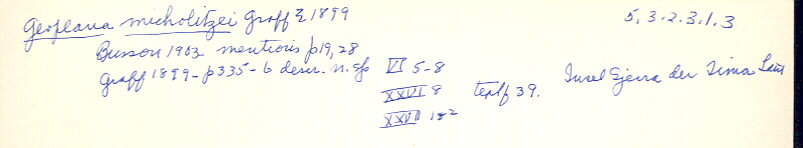 Geoplana micholitzei Graff 1899
5.3.2.3.1.3
Busson 1903 mentions p19, 28
Graff 1899 - p335-6 descr. n. sp VI 5-8
XXVI 8 textf 39. Insel Gjeira der Tima
XXVII 1&2